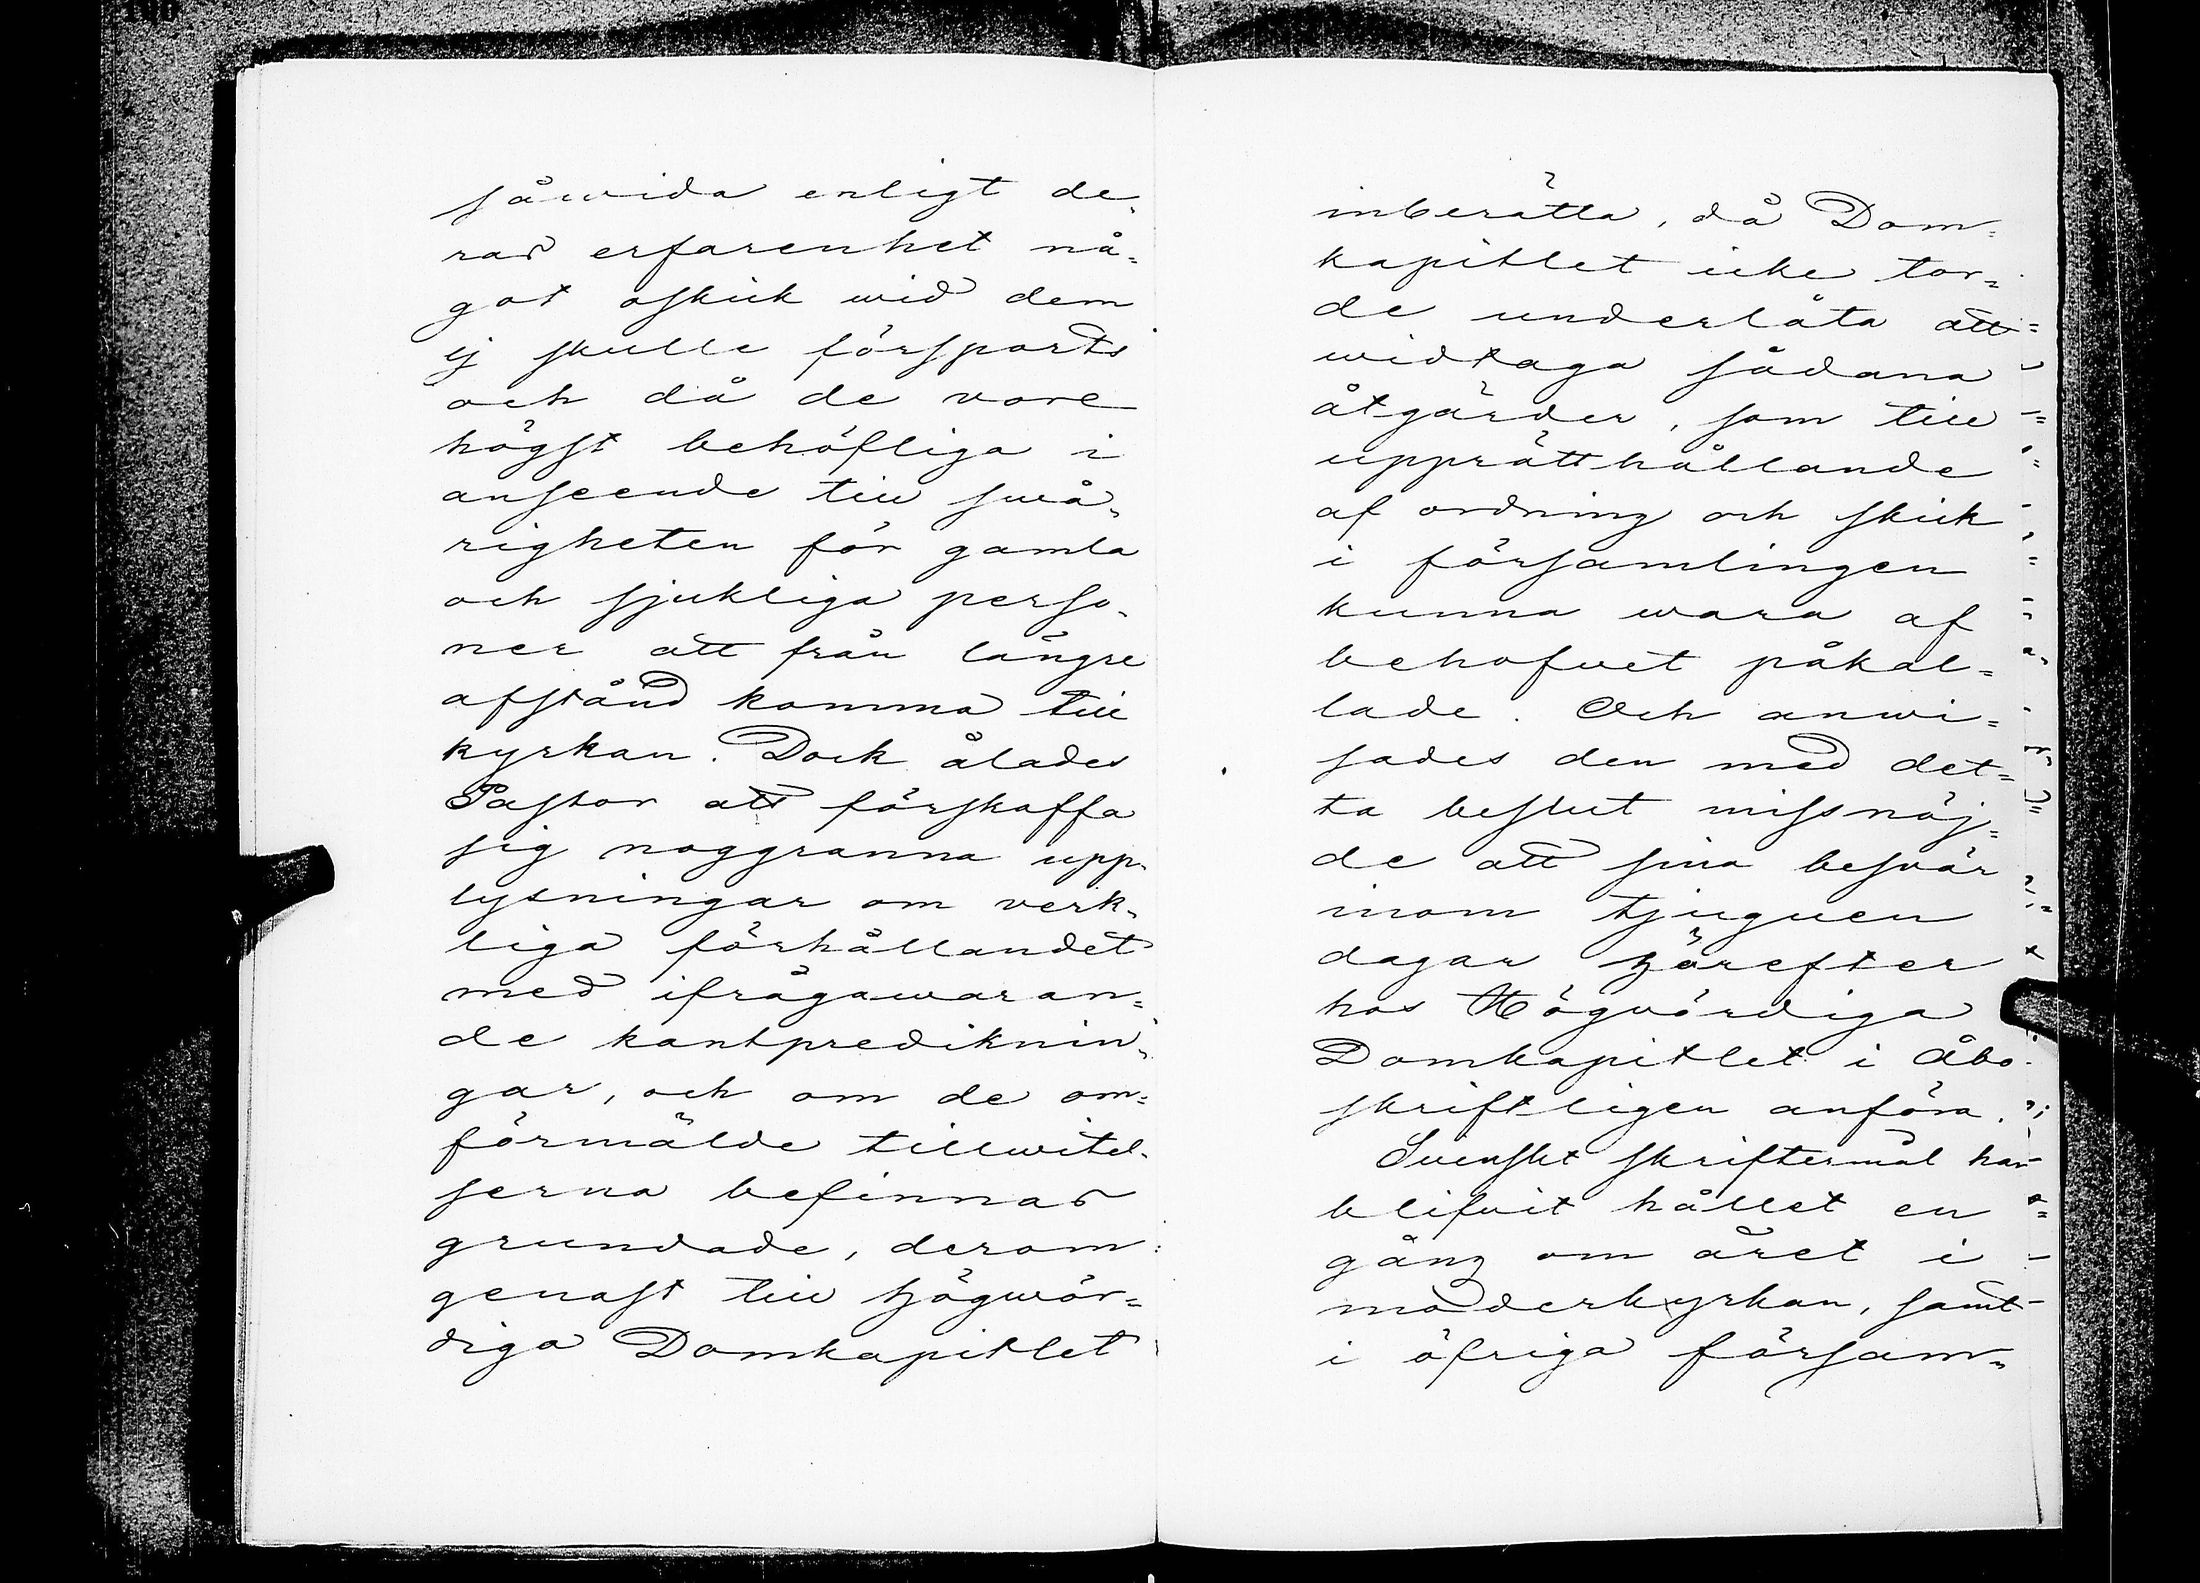 såwida enligt de-
ras erfarenhet nå-
got oskick wid dem
ej skulle försports
och då de vore
högst behöfliga i
anseende till swå-
righeten för gamla
och sjukliga perso-
ner att från längre
afstånd komma till
kyrkan. Dock ålades
Pastor att förskaffa
sig noggranna upp-
lysningar om verk-
liga förhållandet
med ifrågawaran-
de kantprediknin-
gar, och om de om-
förmälde tillwitel-
serna befinnas
grundade, derom
genast till Högwör-
diga Domkapitlet
inberätta, då Dom-
kapitlet icke tor-
de underlåta att
widtaga sådana
åtgärder, som till
upprätthållande
af ordning och skick
i församlingen
kunna wara af
behofvet påkal-
lade. Och anwi-
sades den med det-
ta beslut missnöj-
de att sina besvär
inom tjuguen
dagar härefter
hos Högvördiga
Domkapitlet i Åbo
skriftligen anföra.
Svenskt skriftermål har
blifvit hållet en
gång om året i
moderkyrkan, samt
i öfriga försam-